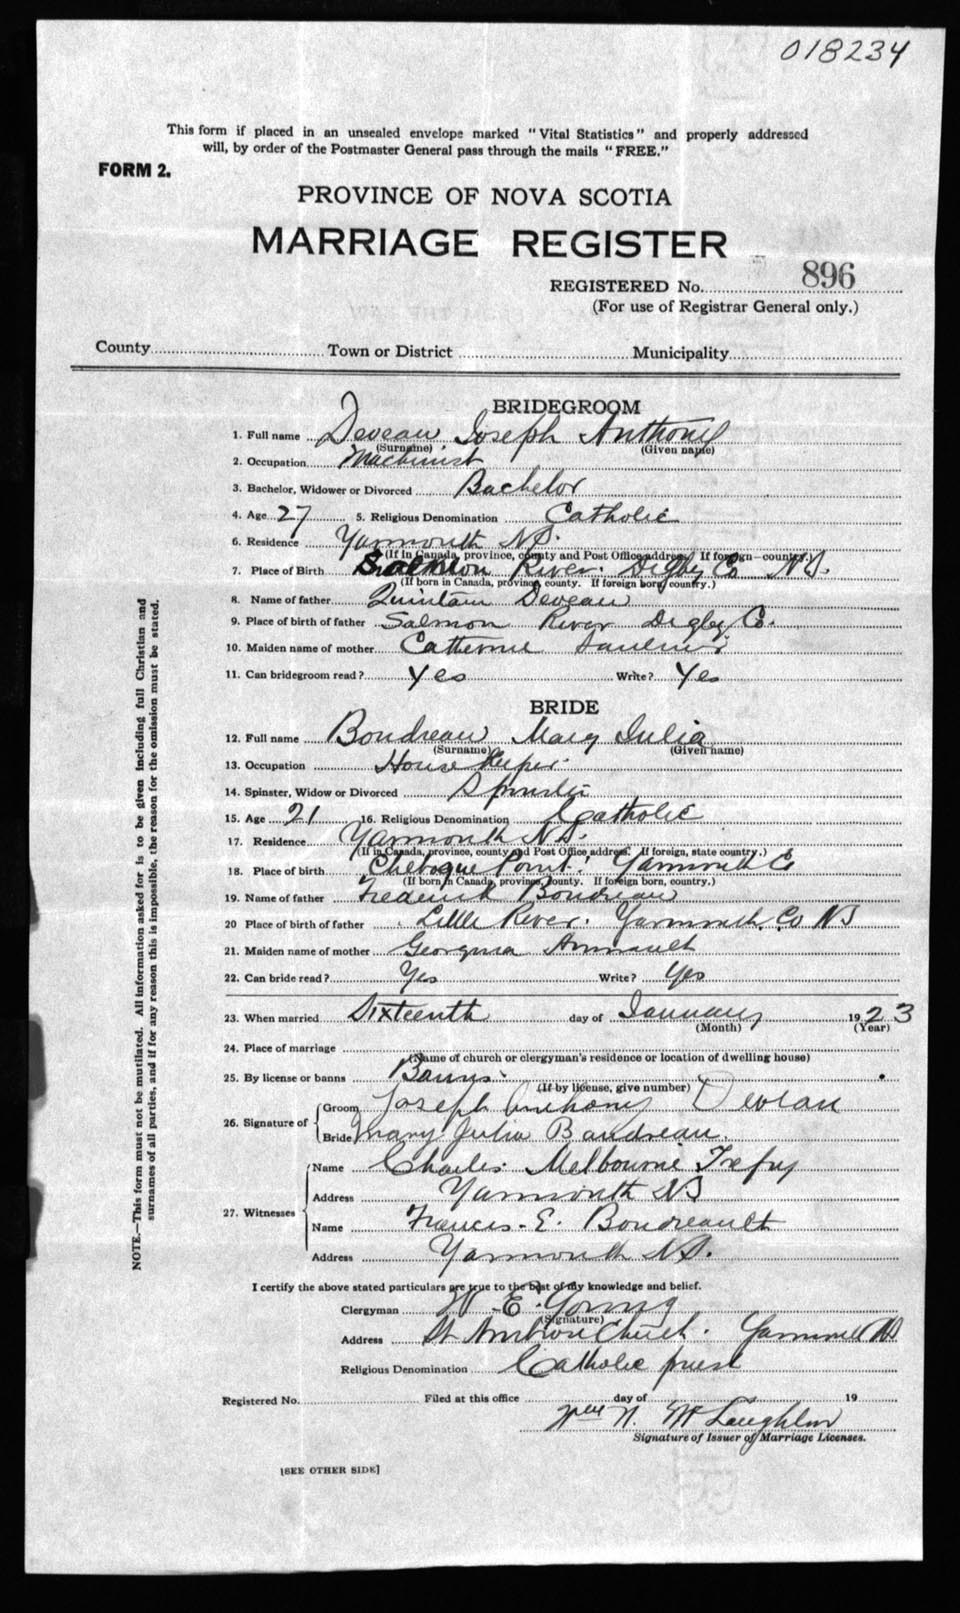 018234
This form if placed in an unsealed envelope marked "Vital Statistics" and properly addressed
will, by order of the Postmaster General pass through the mails "FREE."
FORM 2.
PROVINCE OF NOVA SCOTIA
MARRIAGE REGISTER
REGISTERED No. 896
(For use of Registrar General only.)
County Town or District Municipality
BRIDEGROOM
1. Full name Deveau Joseph Anthony
(Surname) (Given name)
2. Occupation Machinist
3. Bachelor, Widower or Divorced Bachelor
4. Age 27 5. Religious Denomination Catholic
6. Residence Yarmouth N.S.
(If in Canada, province, county and Post Office address. If foreign—country.)
7. Place of Birth Salmon River. Digby Co N.S.
(If born in Canada, province, county. If foreign born, country.)
8. Name of father Quintain Deveau
9. Place of birth of father Salmon River Digby Co.
10. Maiden name of mother Catherine Saulnier
11. Can bridegroom read? Yes Write? Yes
BRIDE
12. Full name Boudreau Mary Julia
(Surname) (Given name)
13. Occupation House Keeper.
14. Spinster, Widow or Divorced Spinster
15. Age 21 16. Religious Denomination Catholic
17. Residence Yarmouth N.S.
(If in Canada, province, county and Post Office address. If foreign, state country.)
18. Place of birth Chebogue Point. Yarmouth Co
(If born in Canada, province, county. If foreign born, country.)
19. Name of father Frederick Boudreau
20 Place of birth of father Little River. Yarmouth. Co NS
21. Maiden name of mother Georgina Amirault
22. Can bride read? Yes Write? Yes
23. When married Sixteenth day of January 1923
(Month) (Year)
24. Place of marriage
(Name of church or clergyman's residence or location of dwelling house)
25. By license or banns Banns.
(If by license, give number)
26. Signature of Groom Joseph Anthony Deveau
Bride Mary Julia Boudreau.
27. Witnesses Name Charles Melbourne Trefry
Address Yarmouth NS
Name Francis. E. Boudreault
Address Yarmouth N.S.
I certify the above stated particulars are true to the best of my knowledge and belief.
Clergyman W. E. Young
(Signature)
Address St Ambrose Church. Yarmouth NS
Religious Denomination Catholic priest
Registered No. Filed at this office day of 19
Wm N. McLaughlin
Signature of Issuer of Marriage Licenses.
[SEE OTHER SIDE]
NOTE.—This form must not be mutilated. All information asked for is to be given including full Christian and
surnames of all parties, and if for any reason this is impossible, the reason for the omission must be stated.